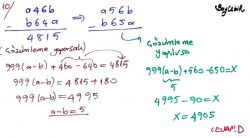 10/
a46b
- b64a
4815
⇒
a56b
- b65a
Gözümleme yaparsak;
999(a-b)+460-640=4815
999(a-b)=4815+180
999(a-b)=4995
a-b=5
Gözümleme yapılırsa
999(a-b)+560-650=X
5
4995-90=X
X=4905
CEVAP:D